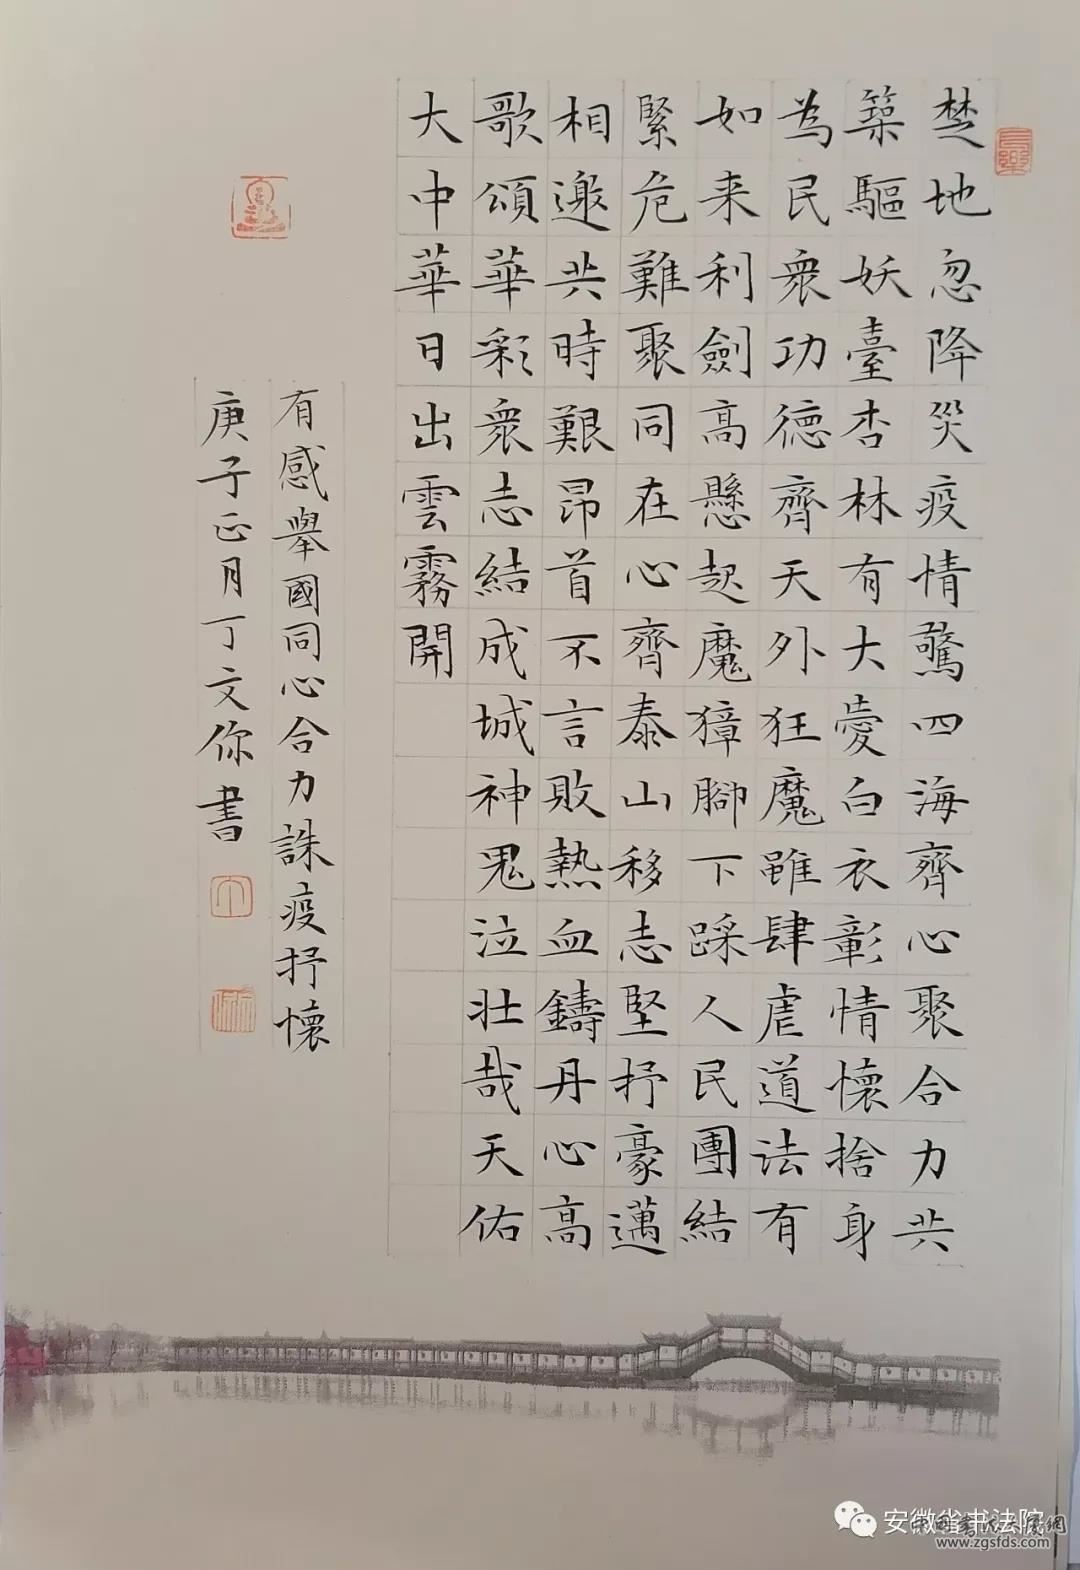 楚地忽降災疫情驚四海齊心聚合力共
築驅妖臺杏林有大愛白衣彰情懷捨身
為民衆功德齊天外狂魔雖肆虐道法有
如来利劍高懸起魔獐腳下踩人民團結
緊危難聚同在心齊泰山移志堅抒豪邁
相邀共時艱昂首不言敗熱血鑄丹心高
歌頌華彩衆志結成城神鬼泣壮哉天佑
大中華日出雲霧開
有感舉國同心合力誅疫抒懷
庚子正月丁文你書
安徽省书法院
www.zgsfds.com